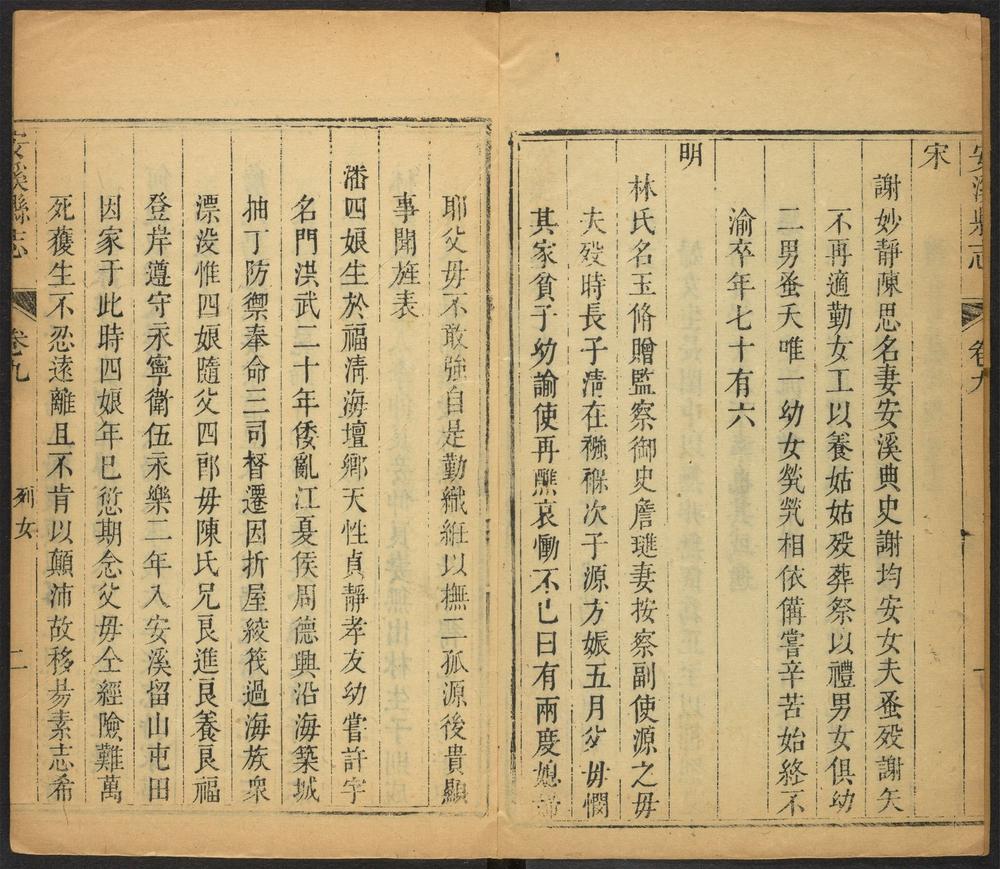 安溪縣志 卷九
宋
謝妙靜陳思名妻安溪典史謝均安女夫蚤歿謝矢
不再適勤女工以養姑姑歿葬祭以禮男女俱幼
二男蚤夭唯一幼女煢煢相依備嘗辛苦始終不
渝卒年七十有六
明
林氏名玉脩贈監察御史詹璉妻按察副使源之母
夫歿時長子淸在襁褓次子源方娠五月父母憫
其家貧子幼諭使再醮哀慟不已曰有兩度媳婦
耶父母不敢強自是勤織絍以撫二孤源後貴顯
事聞旌表
潘四娘生於福淸海壇鄉天性貞靜孝友幼嘗許字
名門洪武二十年倭亂江夏侯周德興沿海築城
抽丁防禦奉命三司督遷因折屋綾筏過海族衆
漂没惟四娘隨父四郎母陳氏兄良進良養良福
登岸遵守永寧衛伍永樂二年入安溪留山屯田
因家于此時四娘年巳愆期念父母仝經險難萬
死蒦生不忍逺離且不肯以顛沛故移昜素志希
安溪縣志 卷九 列女 二